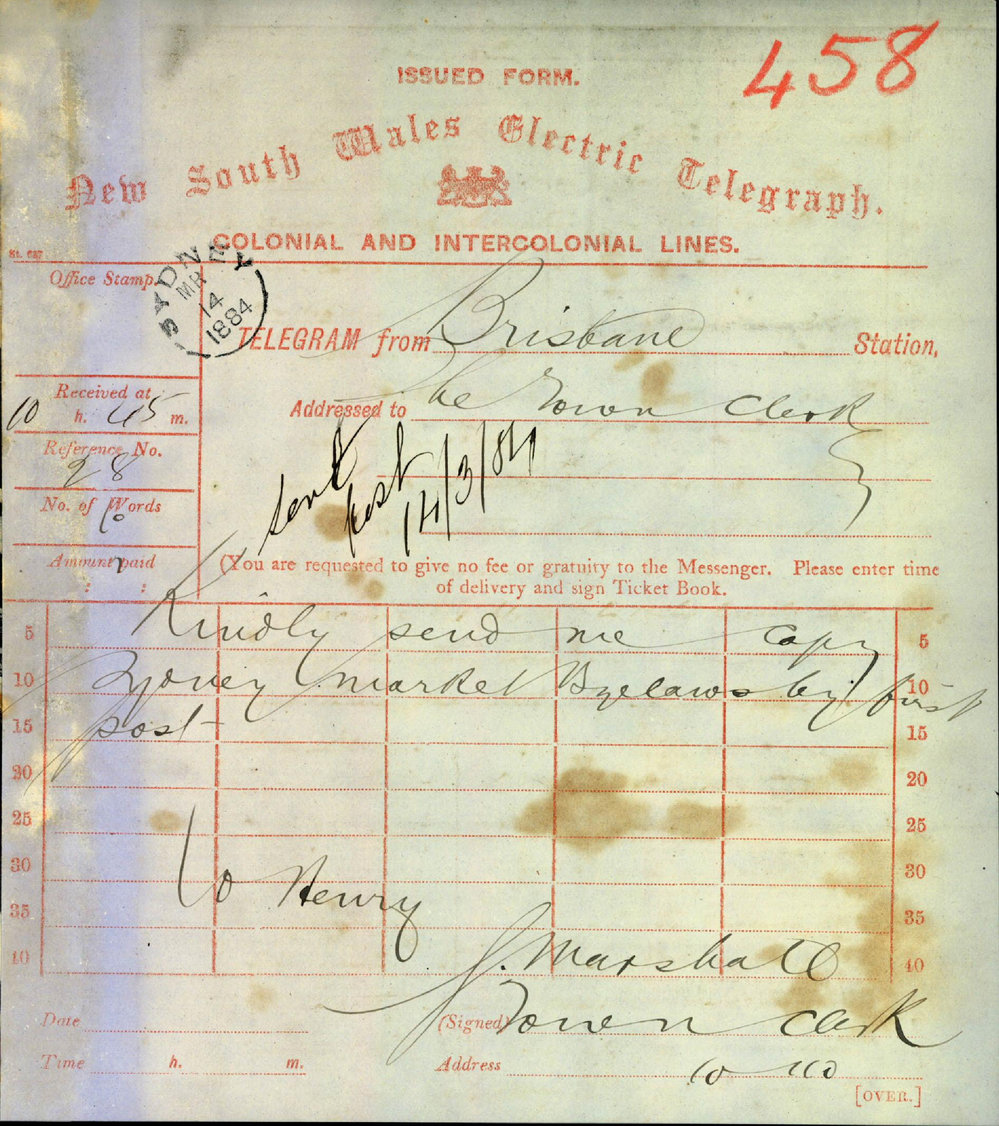 458
ISSUED FORM.
New South Wales Electric Telegraph.
COLONIAL AND INTERCOLONIAL LINES.
Office Stamp.
SYDNEY
MR
14
1884
TELEGRAM from Brisbane Station,
Received at
10 h. 45 m.
Addressed to The Town Clerk
Reference No.
28
sent
post
14/3/84
No. of Words
10
Amount paid
: :
(You are requested to give no fee or gratuity to the Messenger. Please enter time
of delivery and sign Ticket Book.
5 Kindly send me copy 5
10 Sydney market Byelaws by first 10
15 post 15
20 20
25 25
30 Henry 30
35 35
40 J. Marshall 40
Date (Signed) Town Clerk
Time h. m. Address
[OVER.]